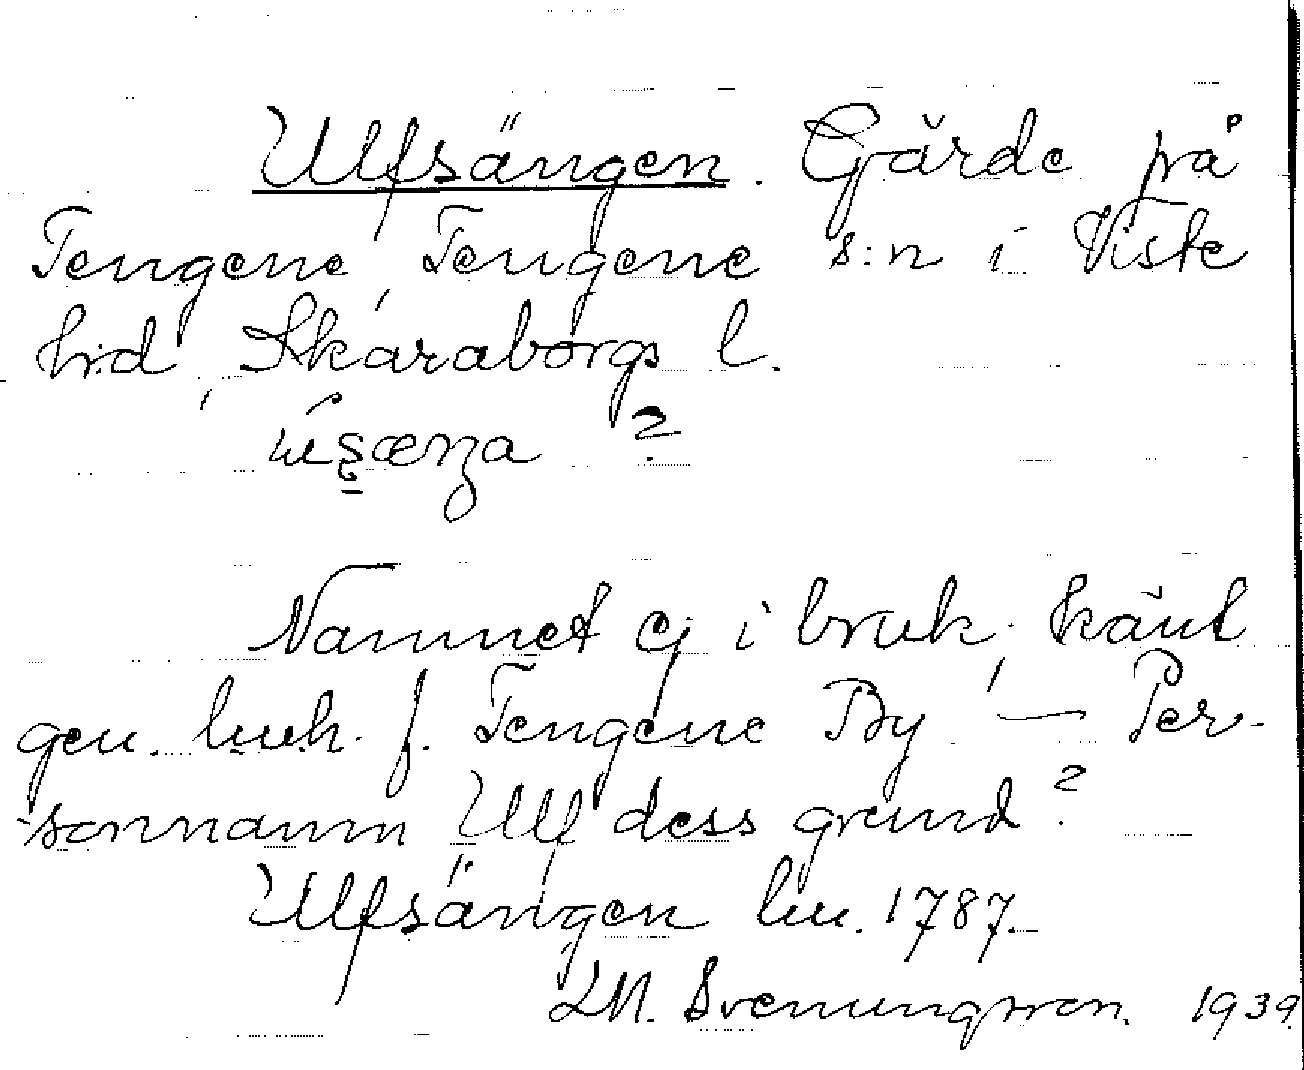 Ulfsängen. Gärde på
Tengene, Tengene s:n i Viste
hrd, Skaraborgs l.
?
Namnet ej i bruk, känt
gen. lmh. f. Tengene By — Per-
sonnamn Ulf dess grund?
Ulfsängen lm. 1787.
LM. Svenungsson. 1939.